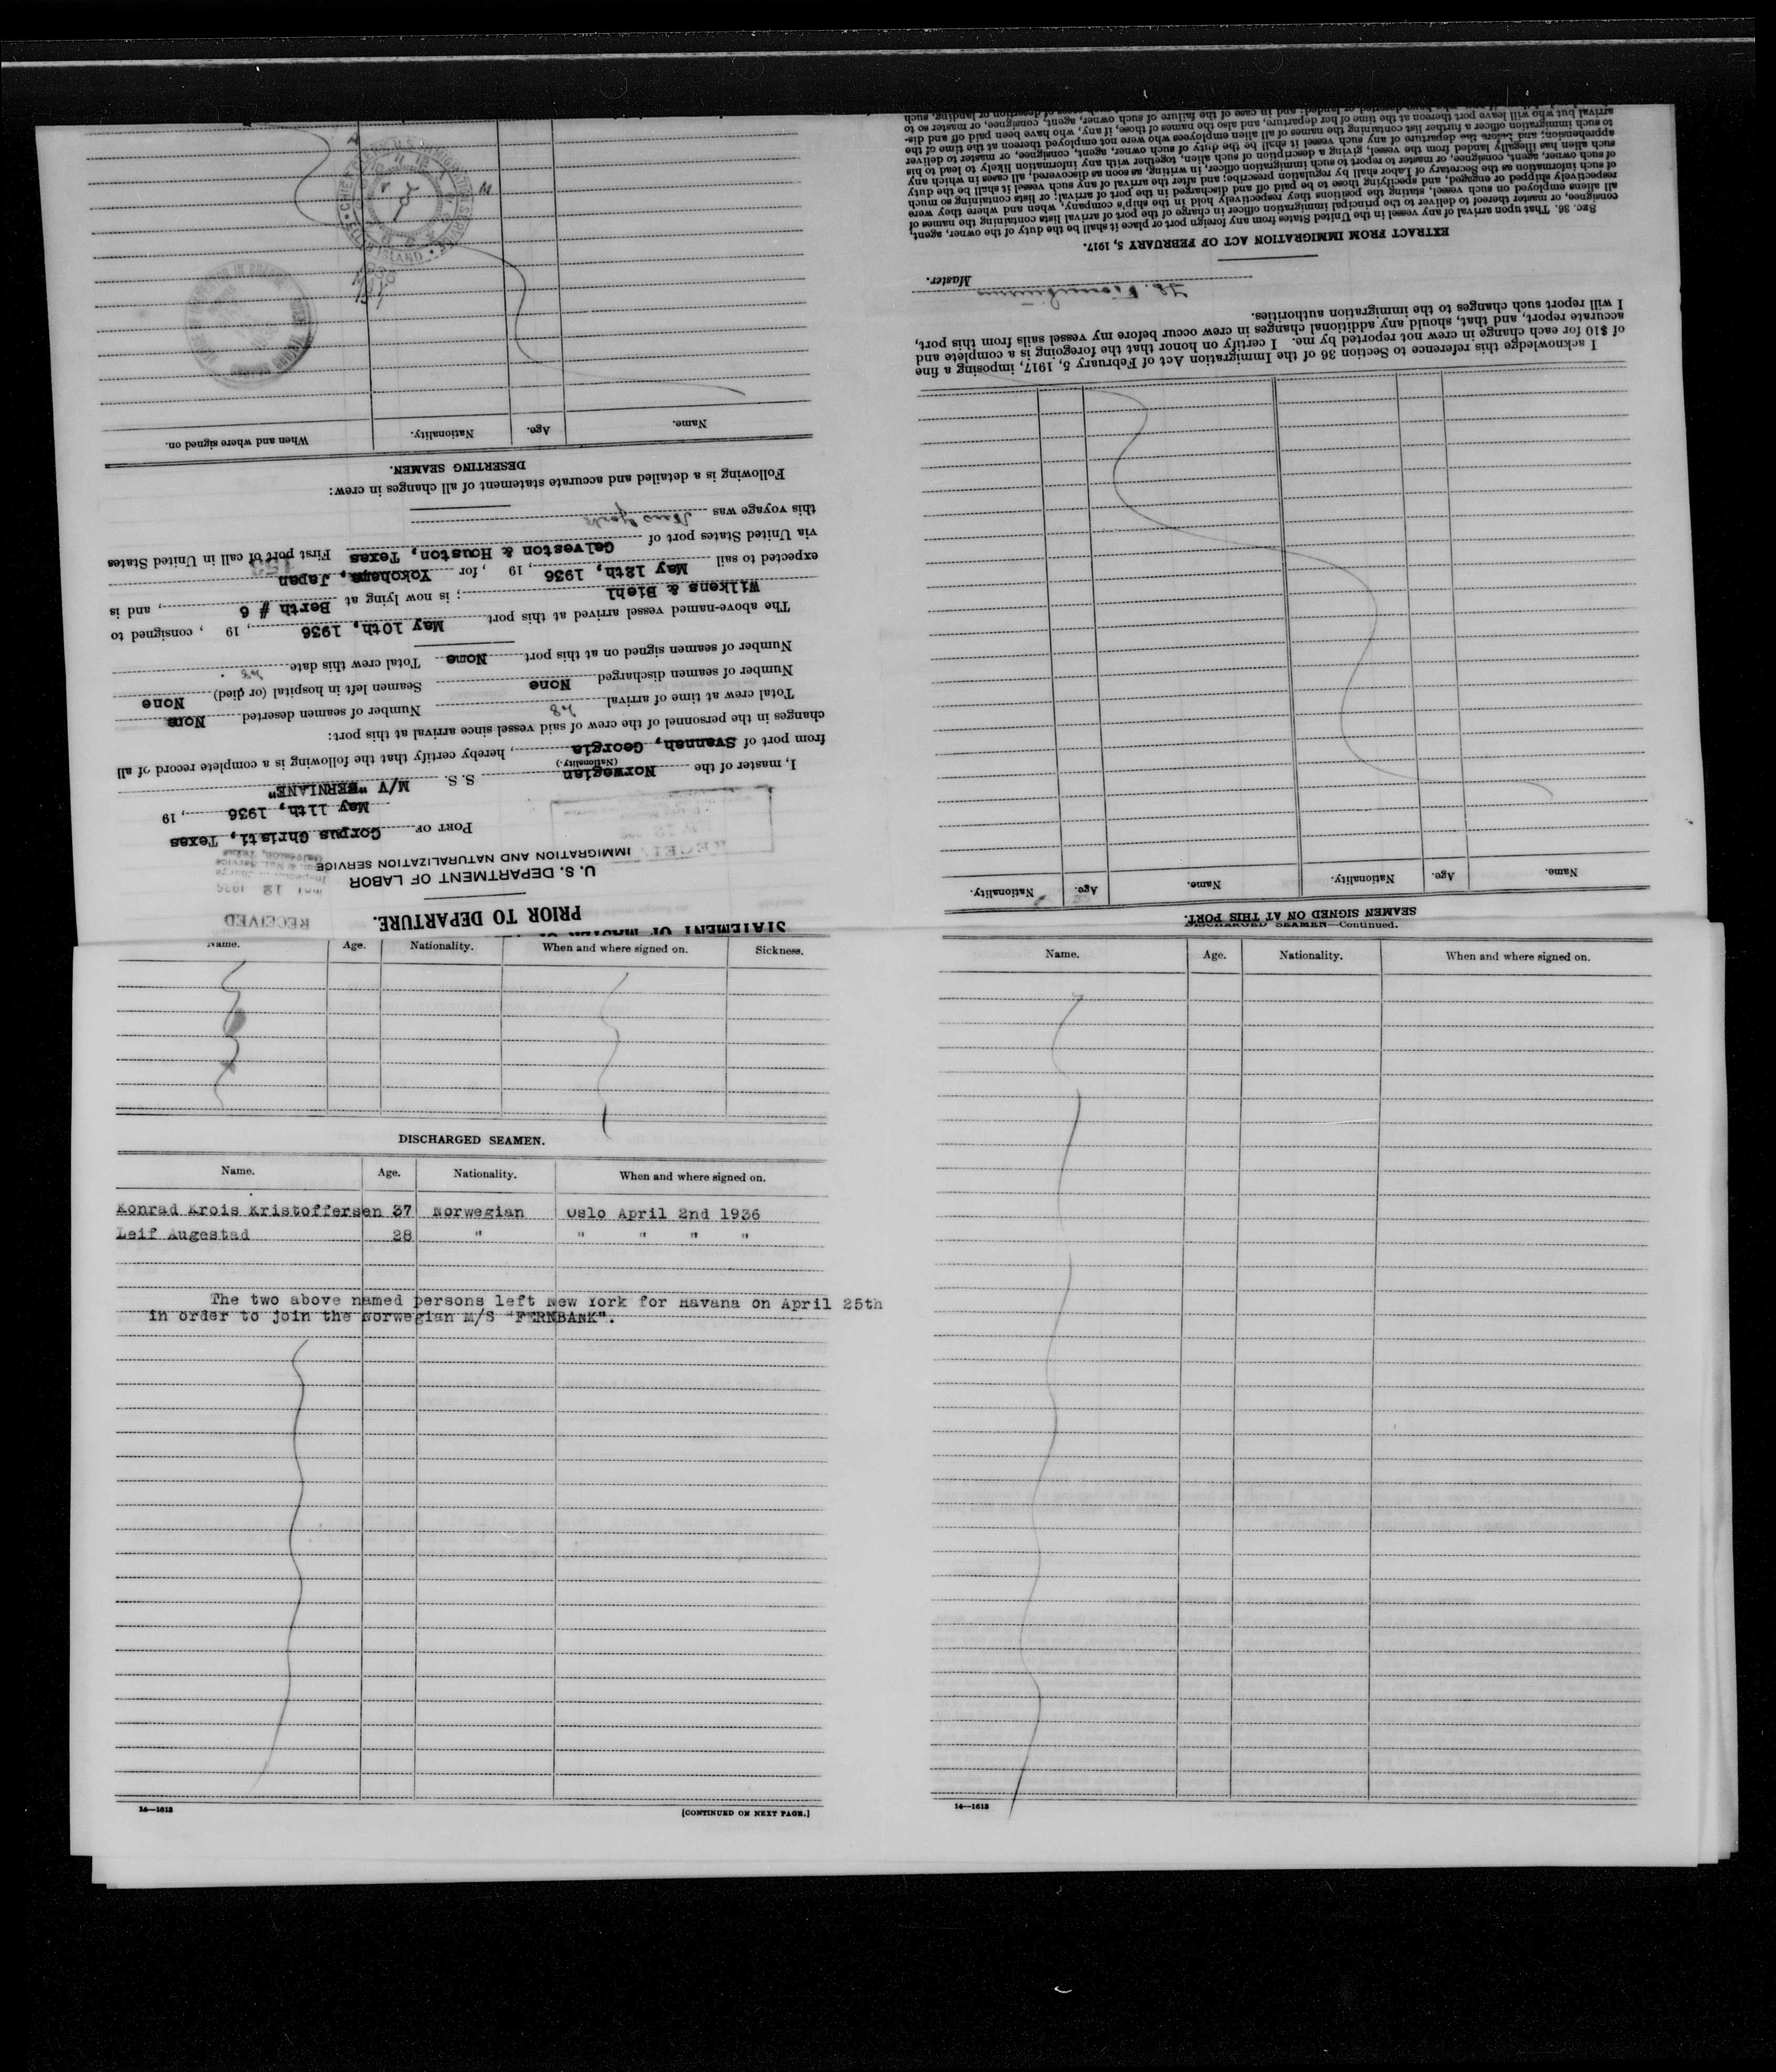 STATEMENT OF MASTER OF
PRIOR TO DEPARTURE.
RECEIVED
U. S. DEPARTMENT OF LABOR
IMMIGRATION AND NATURALIZATION SERVICE
PORT OF Corpus Christi, Texas
May 11th, 1936, 19
I, master of the Norwegian S. S. M/V "FERNLANE"
(Nationality.)
from port of Svannah, Georgia, hereby certify that the following is a complete record of all
changes in the personnel of the crew of said vessel since arrival at this port:
Total crew at time of arrival 28 Number of seamen deserted None
Number of seamen discharged None Seamen left in hospital (or died) None
Number of seamen signed on at this port None Total crew this date 28
The above-named vessel arrived at this port May 10th, 1936, 19 , consigned to
Wilkens & Biehl; is now lying at Berth # 6, and is
expected to sail May 12th, 1936, 19 , for Yokohama, Japan
via United States port of Galveston & Houston, Texas First port of call in United States
this voyage was New York
Following is a detailed and accurate statement of all changes in crew:
DESERTING SEAMEN.
Name. Age. Nationality. When and where signed on.
SEAMEN SIGNED ON AT THIS PORT.
Name. Age. Nationality. Name. Age. Nationality.
I acknowledge this reference to Section 36 of the Immigration Act of February 5, 1917, imposing a fine
of $10 for each change in crew not reported by me. I certify on honor that the foregoing is a complete and
accurate report, and that, should any additional changes in crew occur before my vessel sails from this port,
I will report such changes to the immigration authorities.
Master.
EXTRACT FROM IMMIGRATION ACT OF FEBRUARY 5, 1917.
SEC. 36. That upon arrival of any vessel in the United States from any foreign port or place it shall be the duty of the owner, agent,
consignee, or master thereof to deliver to the principal immigration officer in charge of the port of arrival lists containing the names of
all aliens employed on such vessel, stating the positions they respectively hold in the ship's company, when and where they were
respectively shipped or engaged, and specifying those to be paid off and discharged in the port of arrival; or lists containing so much
of such information as the Secretary of Labor shall by regulation prescribe; and after the arrival of any such vessel it shall be the duty
of such owner, agent, consignee, or master to report to such immigration officer, in writing, as soon as discovered, all cases in which any
such alien has illegally landed from the vessel, giving a description of such alien, together with any information likely to lead to his
apprehension; and before the departure of any such vessel it shall be the duty of such owner, agent, consignee, or master to deliver
to such immigration officer a further list containing the names of all alien employees who were not employed thereon at the time of the
arrival but who will leave port thereon at the time of her departure, and also the names of those, if any, who have been paid off and dis-
Name. Age. Nationality. When and where signed on. Sickness.
DISCHARGED SEAMEN.
Name. Age. Nationality. When and where signed on.
Konrad Krois Kristoffersen 37 Norwegian Oslo April 2nd 1936
Leif Augestad 28 " " " " "
The two above named persons left New York for Havana on April 25th
in order to join the Norwegian M/S "FERNBANK".
14—1613
[CONTINUED ON NEXT PAGE.]
DISCHARGED SEAMEN—Continued.
Name. Age. Nationality. When and where signed on.
14—1613